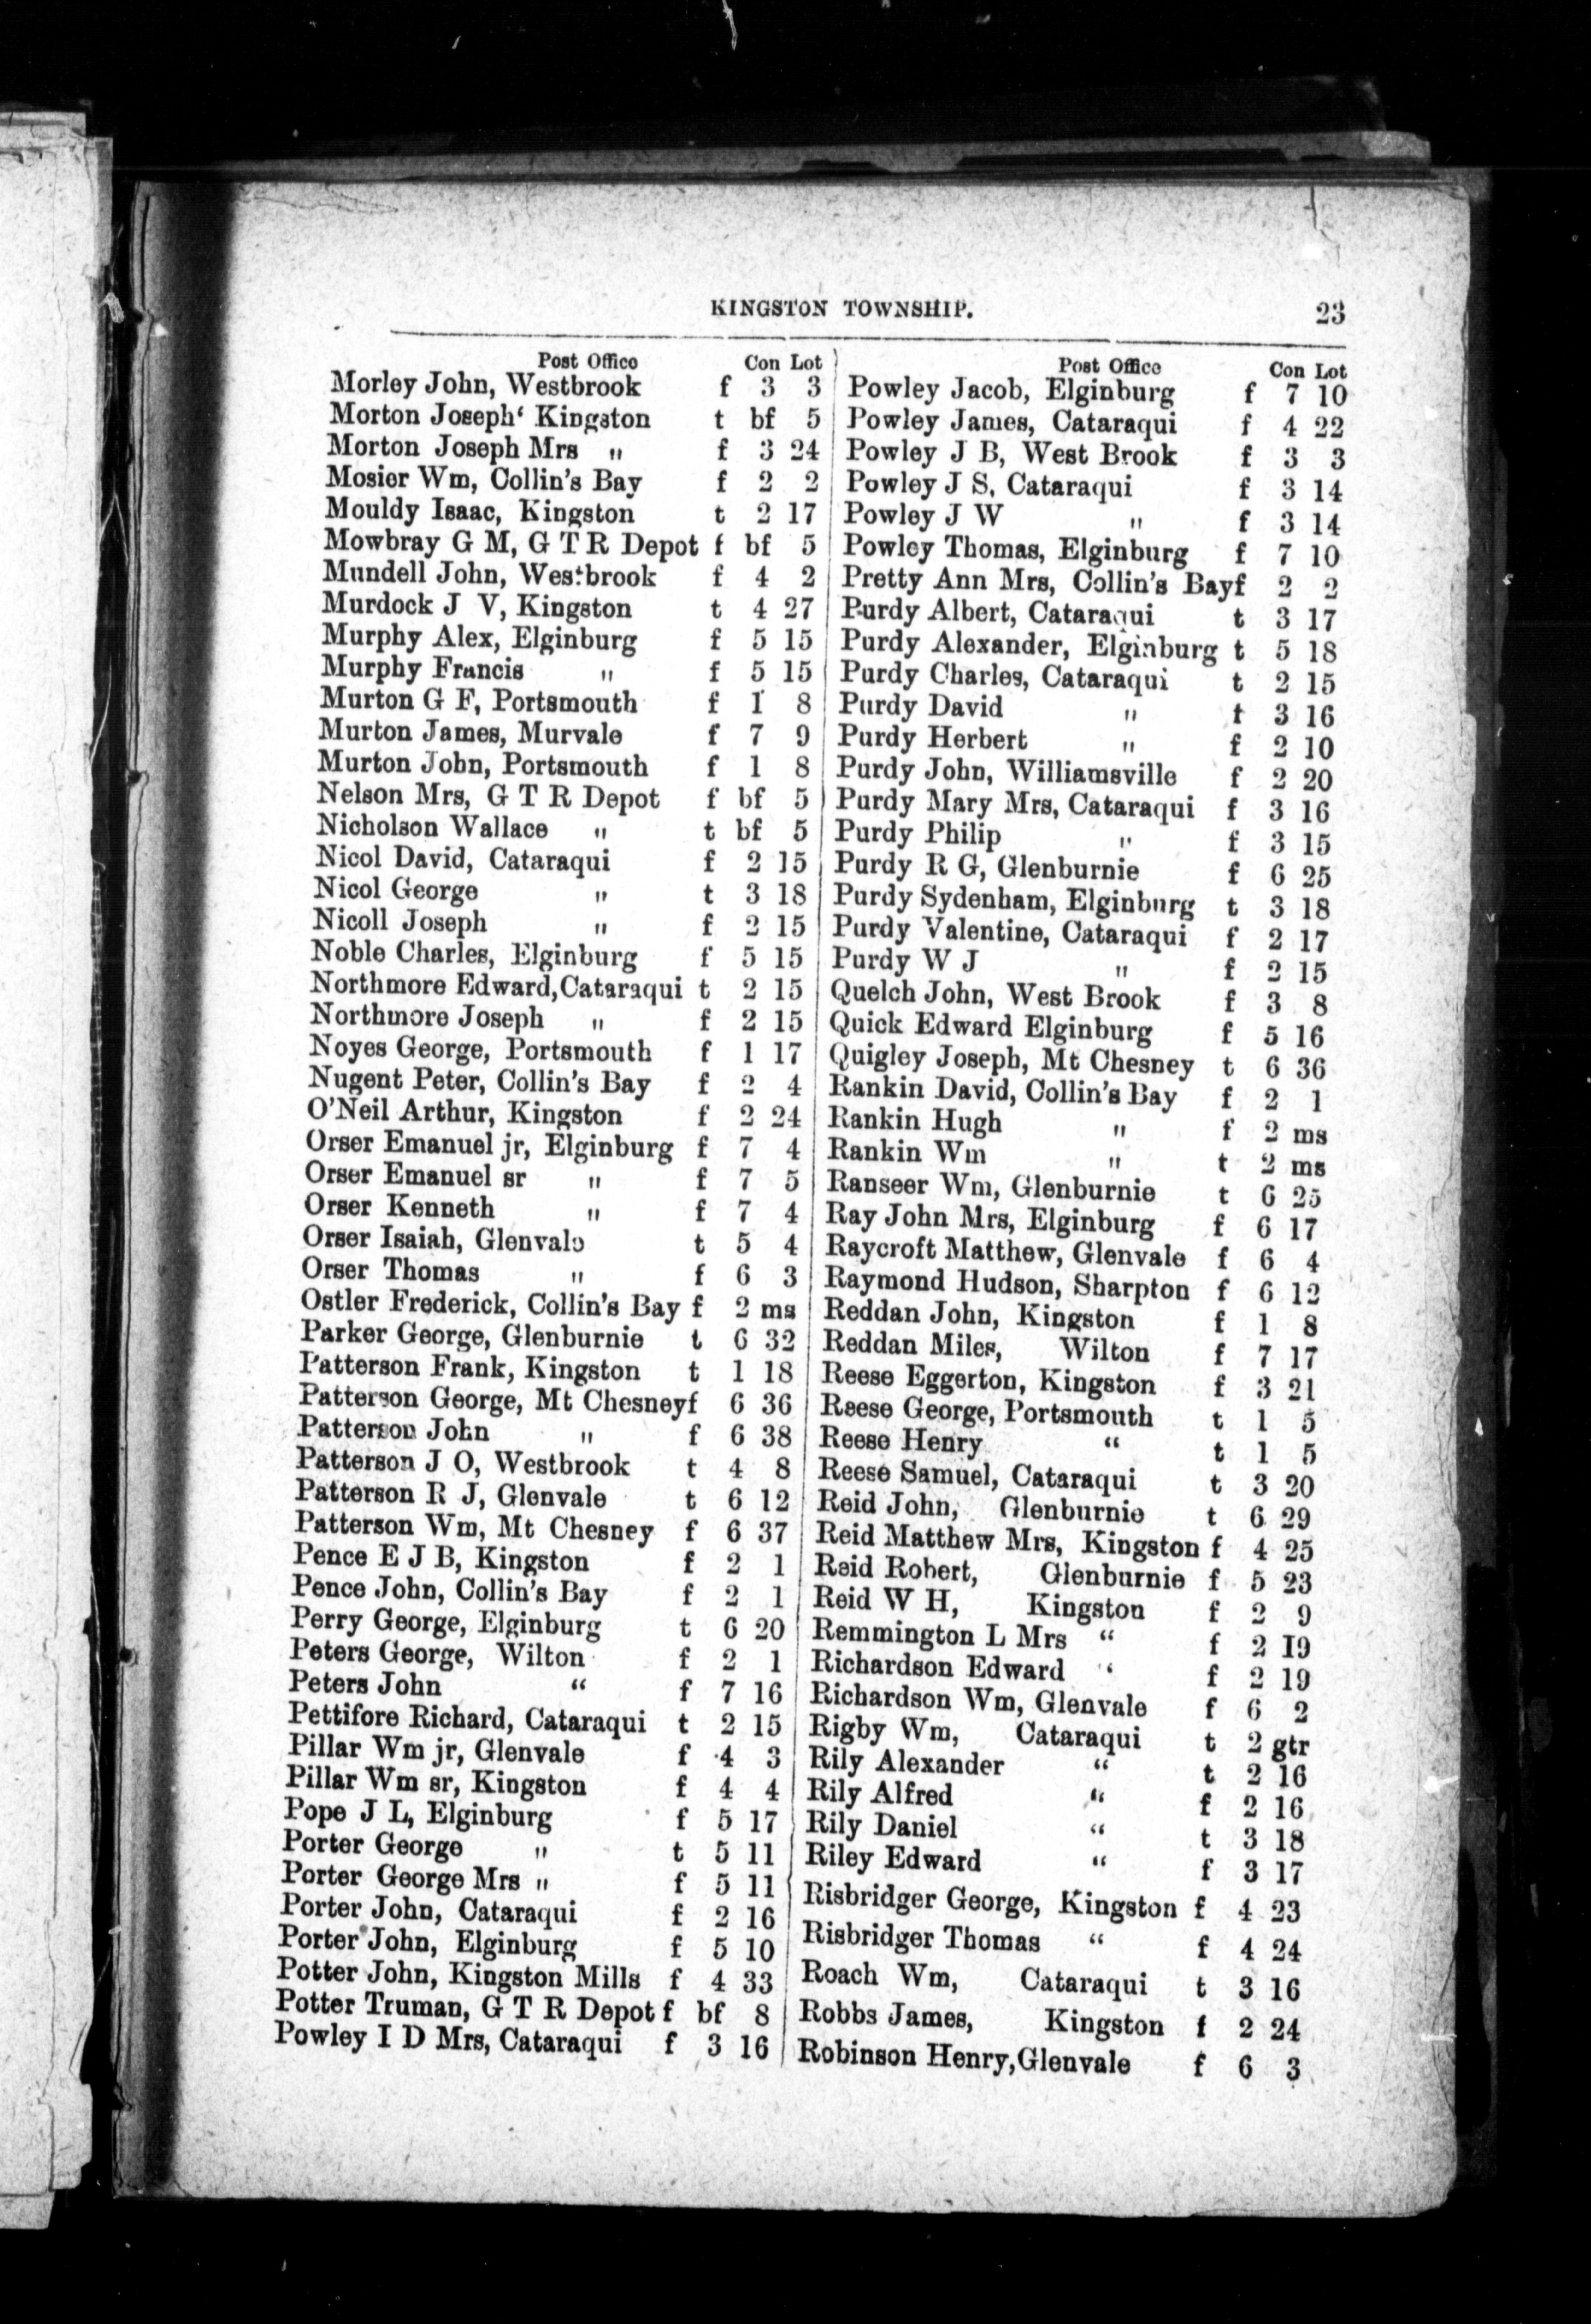 KINGSTON TOWNSHIP. 23
Post Office Con Lot
Morley John, Westbrook f 3 3
Morton Joseph‘ Kingston t bf 5
Morton Joseph Mrs " f 3 24
Mosier Wm, Collin's Bay f 2 2
Mouldy Isaac, Kingston t 2 17
Mowbray G M, G T R Depot f bf 5
Mundell John, Westbrook f 4 2
Murdock J V, Kingston t 4 27
Murphy Alex, Elginburg f 5 15
Murphy Francis " f 5 15
Murton G F, Portsmouth f 1 8
Murton James, Murvale f 7 9
Murton John, Portsmouth f 1 8
Nelson Mrs, G T R Depot f bf 5
Nicholson Wallace " t bf 5
Nicol David, Cataraqui f 2 15
Nicol George " t 3 18
Nicoll Joseph " f 2 15
Noble Charles, Elginburg f 5 15
Northmore Edward,Cataraqui t 2 15
Northmore Joseph " f 2 15
Noyes George, Portsmouth f 1 17
Nugent Peter, Collin's Bay f 2 4
O'Neil Arthur, Kingston f 2 24
Orser Emanuel jr, Elginburg f 7 4
Orser Emanuel sr " f 7 5
Orser Kenneth " f 7 4
Orser Isaiah, Glenvale t 5 4
Orser Thomas " f 6 3
Ostler Frederick, Collin's Bay f 2 ms
Parker George, Glenburnie t 6 32
Patterson Frank, Kingston t 1 18
Patterson George, Mt Chesneyf 6 36
Patterson John " f 6 38
Patterson J O, Westbrook t 4 8
Patterson R J, Glenvale t 6 12
Patterson Wm, Mt Chesney f 6 37
Pence E J B, Kingston f 2 1
Pence John, Collin's Bay f 2 1
Perry George, Elginburg t 6 20
Peters George, Wilton f 2 1
Peters John “ f 7 16
Pettifore Richard, Cataraqui t 2 15
Pillar Wm jr, Glenvale f 4 3
Pillar Wm sr, Kingston f 4 4
Pope J L, Elginburg f 5 17
Porter George " t 5 11
Porter George Mrs " f 5 11
Porter John, Cataraqui f 2 16
Porter John, Elginburg f 5 10
Potter John, Kingston Mills f 4 33
Potter Truman, G T R Depot f bf 8
Powley I D Mrs, Cataraqui f 3 16
Post Office Con Lot
Powley Jacob, Elginburg f 7 10
Powley James, Cataraqui f 4 22
Powley J B, West Brook f 3 3
Powley J S, Cataraqui f 3 14
Powley J W " f 3 14
Powley Thomas, Elginburg f 7 10
Pretty Ann Mrs, Collin's Bayf 2 2
Purdy Albert, Cataraqui t 3 17
Purdy Alexander, Elginburg t 5 18
Purdy Charles, Cataraqui t 2 15
Purdy David " t 3 16
Purdy Herbert " f 2 10
Purdy John, Williamsville f 2 20
Purdy Mary Mrs, Cataraqui f 3 16
Purdy Philip " f 3 15
Purdy R G, Glenburnie f 6 25
Purdy Sydenham, Elginburg t 3 18
Purdy Valentine, Cataraqui f 2 17
Purdy W J " f 2 15
Quelch John, West Brook f 3 8
Quick Edward Elginburg f 5 16
Quigley Joseph, Mt Chesney t 6 36
Rankin David, Collin's Bay f 2 1
Rankin Hugh " f 2 ms
Rankin Wm " t 2 ms
Ranseer Wm, Glenburnie t 6 25
Ray John Mrs, Elginburg f 6 17
Raycroft Matthew, Glenvale f 6 4
Raymond Hudson, Sharpton f 6 12
Reddan John, Kingston f 1 8
Reddan Miles, Wilton f 7 17
Reese Eggerton, Kingston f 3 21
Reese George, Portsmouth t 1 5
Reese Henry “ t 1 5
Reese Samuel, Cataraqui t 3 20
Reid John, Glenburnie t 6 29
Reid Matthew Mrs, Kingston f 4 25
Reid Robert, Glenburnie f 5 23
Reid W H, Kingston f 2 9
Remmington L Mrs “ f 2 19
Richardson Edward “ f 2 19
Richardson Wm, Glenvale f 6 2
Rigby Wm, Cataraqui t 2 gtr
Rily Alexander “ t 2 16
Rily Alfred “ f 2 16
Rily Daniel “ t 3 18
Riley Edward “ f 3 17
Risbridger George, Kingston f 4 23
Risbridger Thomas “ f 4 24
Roach Wm, Cataraqui t 3 16
Robbs James, Kingston f 2 24
Robinson Henry,Glenvale f 6 3